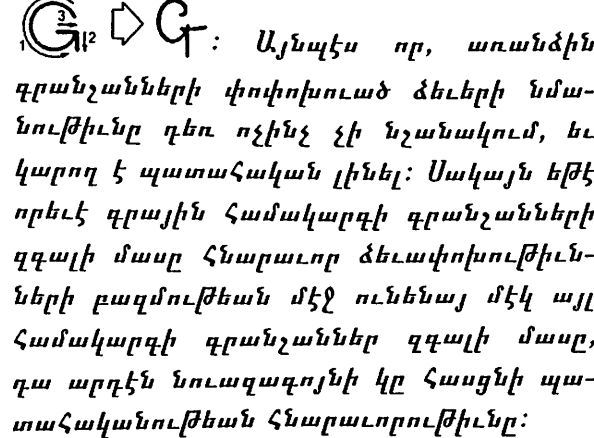 1 3 2 : Այնպէս որ, առանձին
գրանշանների փոփոխուած ձեւերի նմա-
նութիւնը դեռ ոչինչ չի նշանակում, եւ
կարող է պատահական լինել: Սակայն եթէ
որեւէ գրային համակարգի գրանշանների
զգալի մասը հնարաւոր ձեւափոխութիւն-
ների բազմութեան մէջ ունենայ մէկ այլ
համակարգի գրանշաններ զգալի մասը,
դա արդէն նուազագոյնի կը հասցնի պա-
տահականութեան հնարաւորութիւնը: